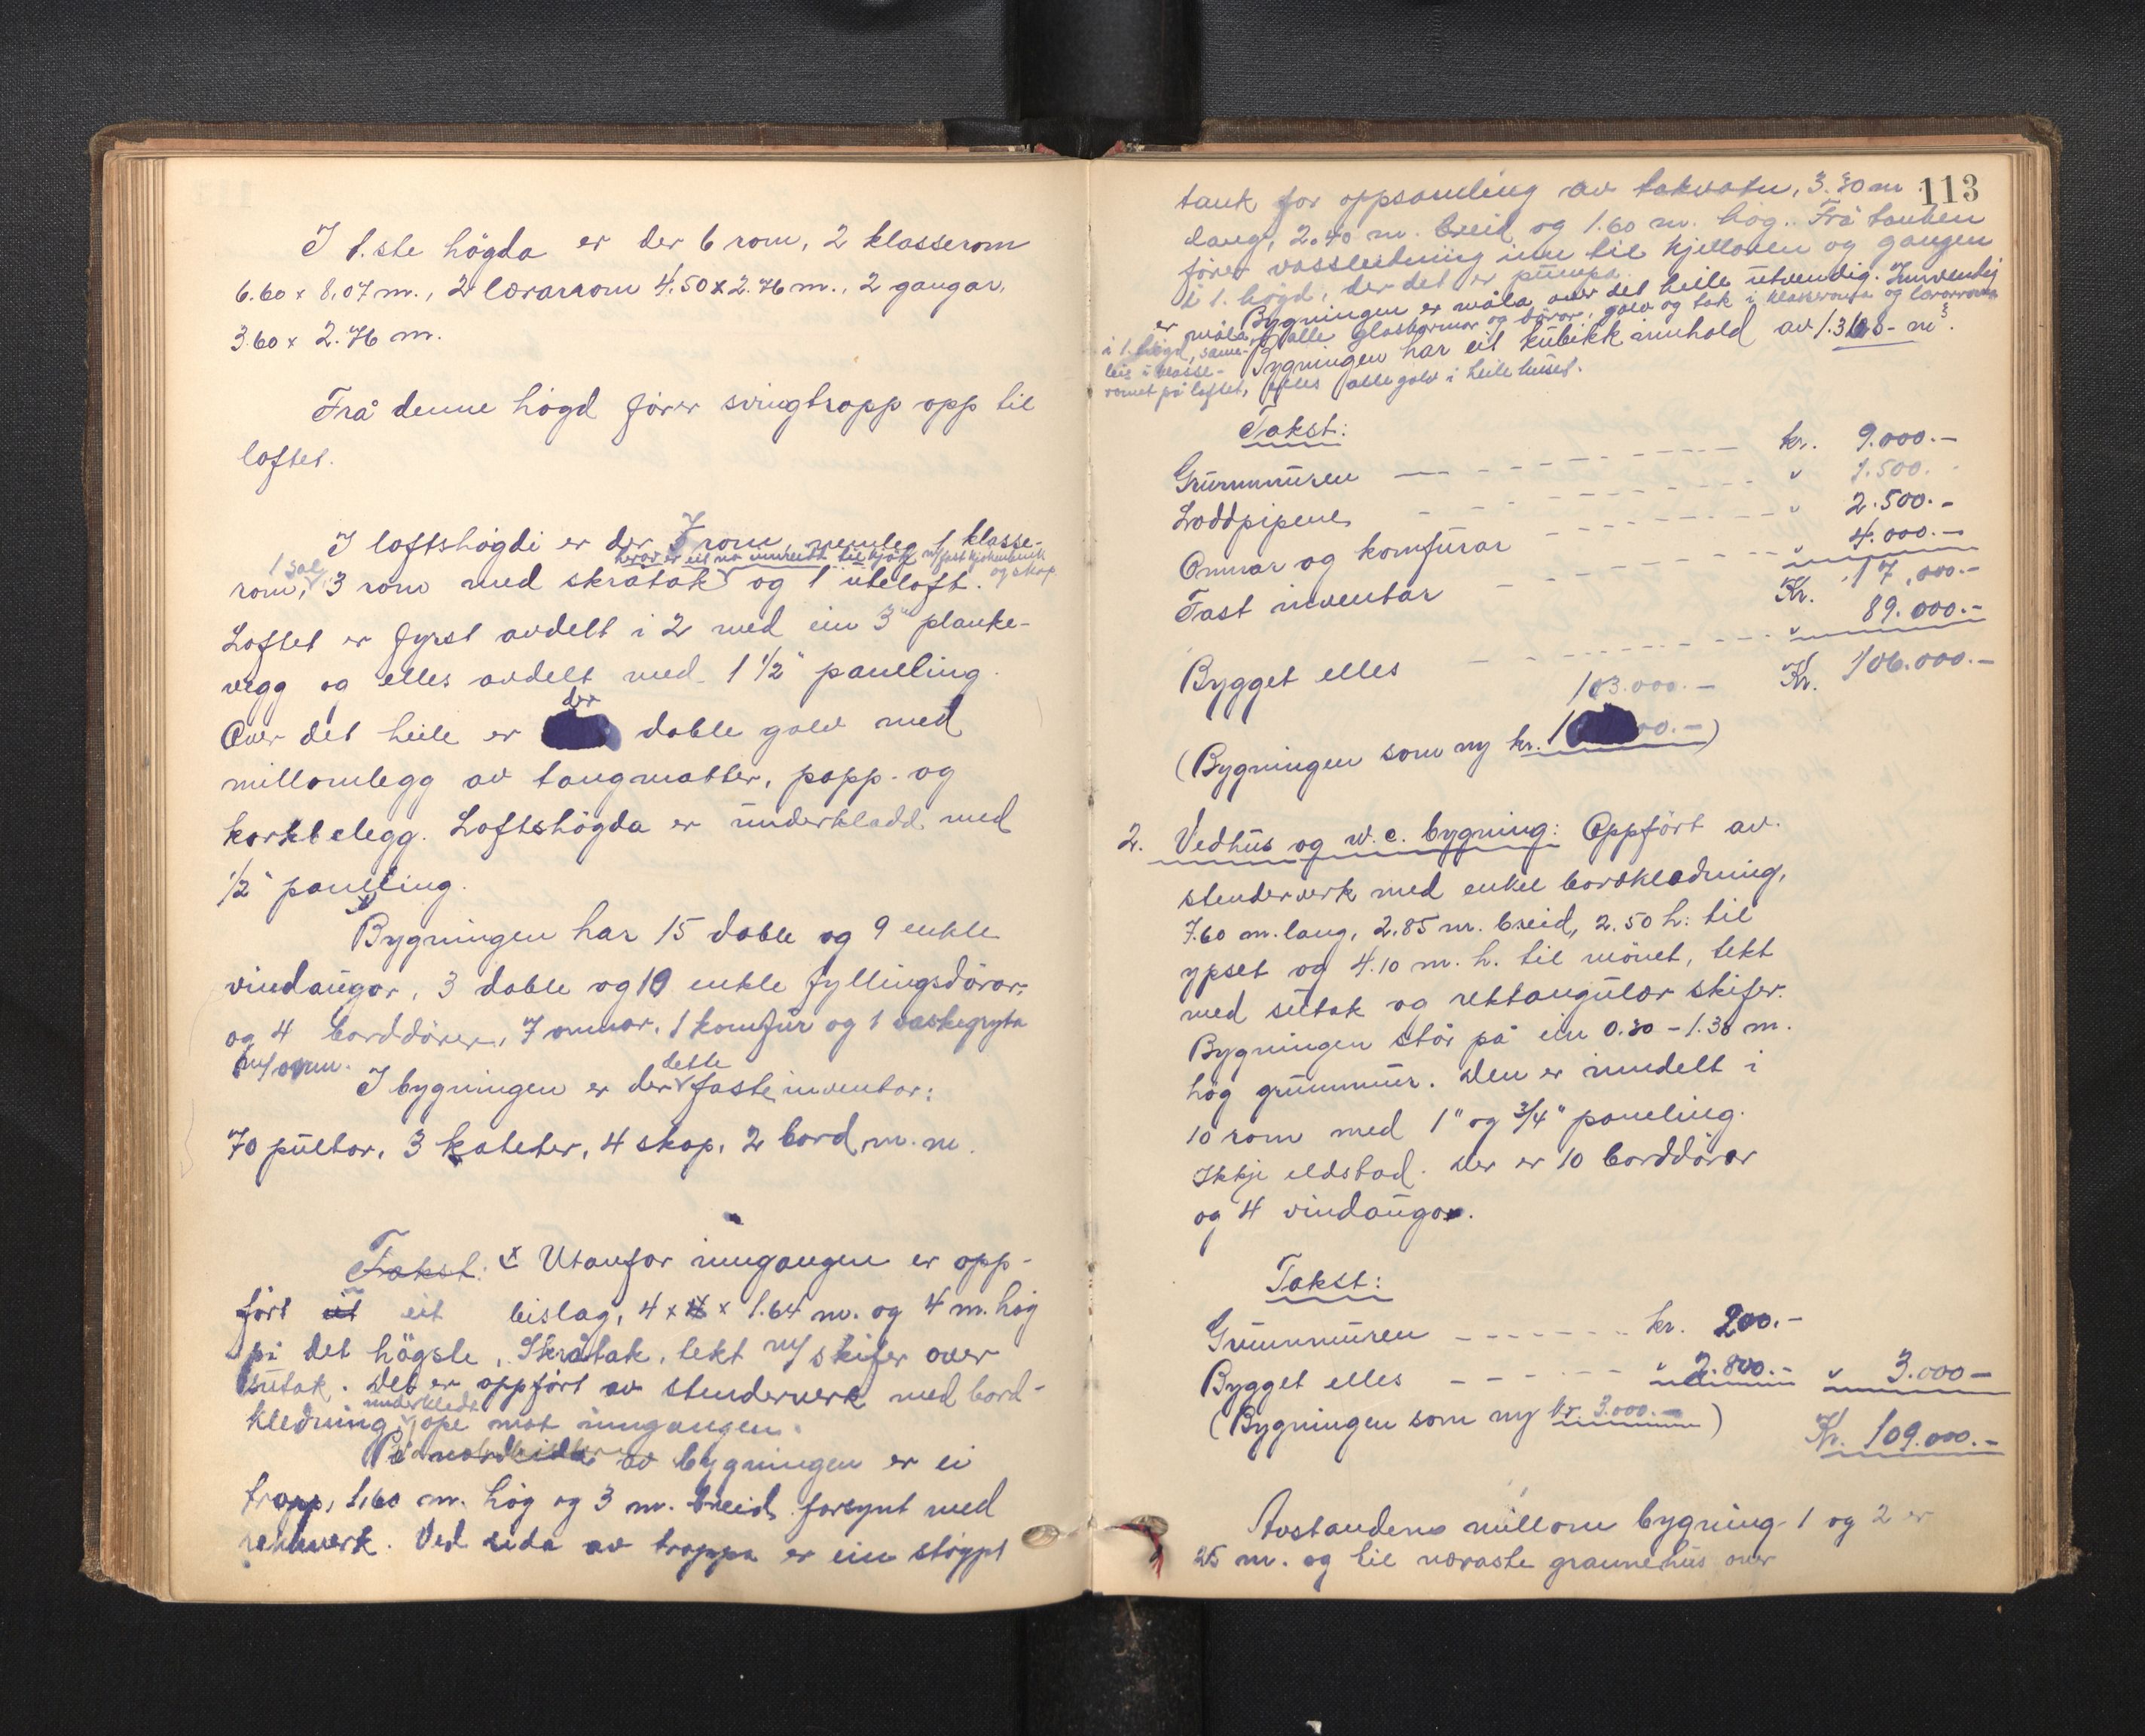 I 1.ste högda er der 6 rom, 2 klasserom
6.60 x 8,07 m., 2 lærarrom 4.50 x 2.76 m., 2 gangar,
3.60 x 2.76 m.
Frå denne högd förer svingtrapp opp til
loftet.
I loftshögdi er der 7 rom, nemleg 1 klasse-
hvorav er eit no innreidt til kjök m/fast kjökenbenk
og skap
1 sal
rom, 3 rom med skråtak og 1 uteloft.
Loftet er fyrst avdelt i 2 med ein 3" planke-
vegg og elles avdelt med 1 1/2" paneling.
der
Over det heile er doble golv med
millomlegg av tangmatter, papp- og
korkbelegg. Loftshögda er underkledd med
1/2" paneling.
Bygningen har 15 doble og 9 enkle
vindaugor, 3 doble og 10 enkle fyllingsdörar,
og 4 borddörer, 7 omnar, 1 komfur og 1 vaskegryta
m/omn.
dette
I bygningen er der faste inventar:
70 pultar, 3 kateter, 4 skap, 2 bord, m.m.
Takst: x Utanfor inngangen er opp-
fört eit bislag, 4 x 4 x 1.64 m. og 4 m. hög
på det högste, Skråtak, tekt m/ skifer over
sutak. Det er oppfört av stenderverk med bord-
underkledt
kledning, ope mot inngangen.
På nordsida av bygningen er ei
trapp, 1,60 m. hög og 3 m. breid forsynt med
rekkverk. Ved sida av trappa er ein stöypt
113
tank for oppsamling av takvatn, 3.30 m
lang, 2.40 m. breid og 1.60 m. hög. Frå tanken
förer vassleidning inn til kjellaren og gangen
i 1. högd, der det er pumpa.
Bygningen er måla over det heile utvendig. Innvendig
er måla alle glaskarmar og dörar, golv og tak i klasseroma og lærarroma
i 1. högd, same-
leis i klasse-
romet på loftet, elles alle golv i heile huset.
Bygningen har eit kubikkinnhold av 1.3168 - m³.
Takst:
Grunnmuren — kr. 9.000.-
Loddpipene " 1.500.-
Omnar og komfurar " 2.500.-
Fast inventar " 4.000.-
Kr. 17.000.-
Bygget elles " 89.000.-
Kr. 106.000.-
103.000.-
(Bygningen som ny kr. 1 00.-)
2. Vedhus og w.c. bygning: Oppfört av
stenderverk med enkel bordkledning,
7.60 m. lang, 2.85 m. breid, 2.50 h. til
ypset og 4.10 m. h. til mönet, tekt
med sutak og rektangulær skifer.
Bygningen står på ein 0.30 - 1.30 m.
hög grunnmur. Den er inndelt i
10 rom med 1" og 3/4" paneling.
Ikkje eldstad. Der er 10 borddörar
og 4 vindaugor.
Takst:
Grunnmuren - - - - kr. 200.-
Bygget elles - - - - " 2.800.- " 3.000 -
(Bygningen som ny kr. 3.000.-)
Kr. 109.000.-
Avstanden millom bygning 1 og 2 er
25 m. og til næraste grannehus over